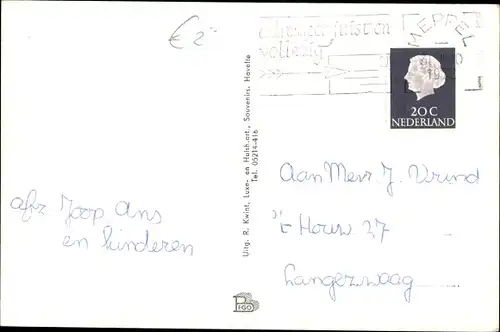 € 2-
adresseer juist en
volledig
MEPPEL
20 C
NEDERLAND
Uitg. R. Kwint, Luxe- en Huish.art., Souvenirs, Havelte
Tel. 05214-416
Aan Mevr. J. Vrind
't Houw 27
Langezwaag
afz Joop Ans
en kinderen